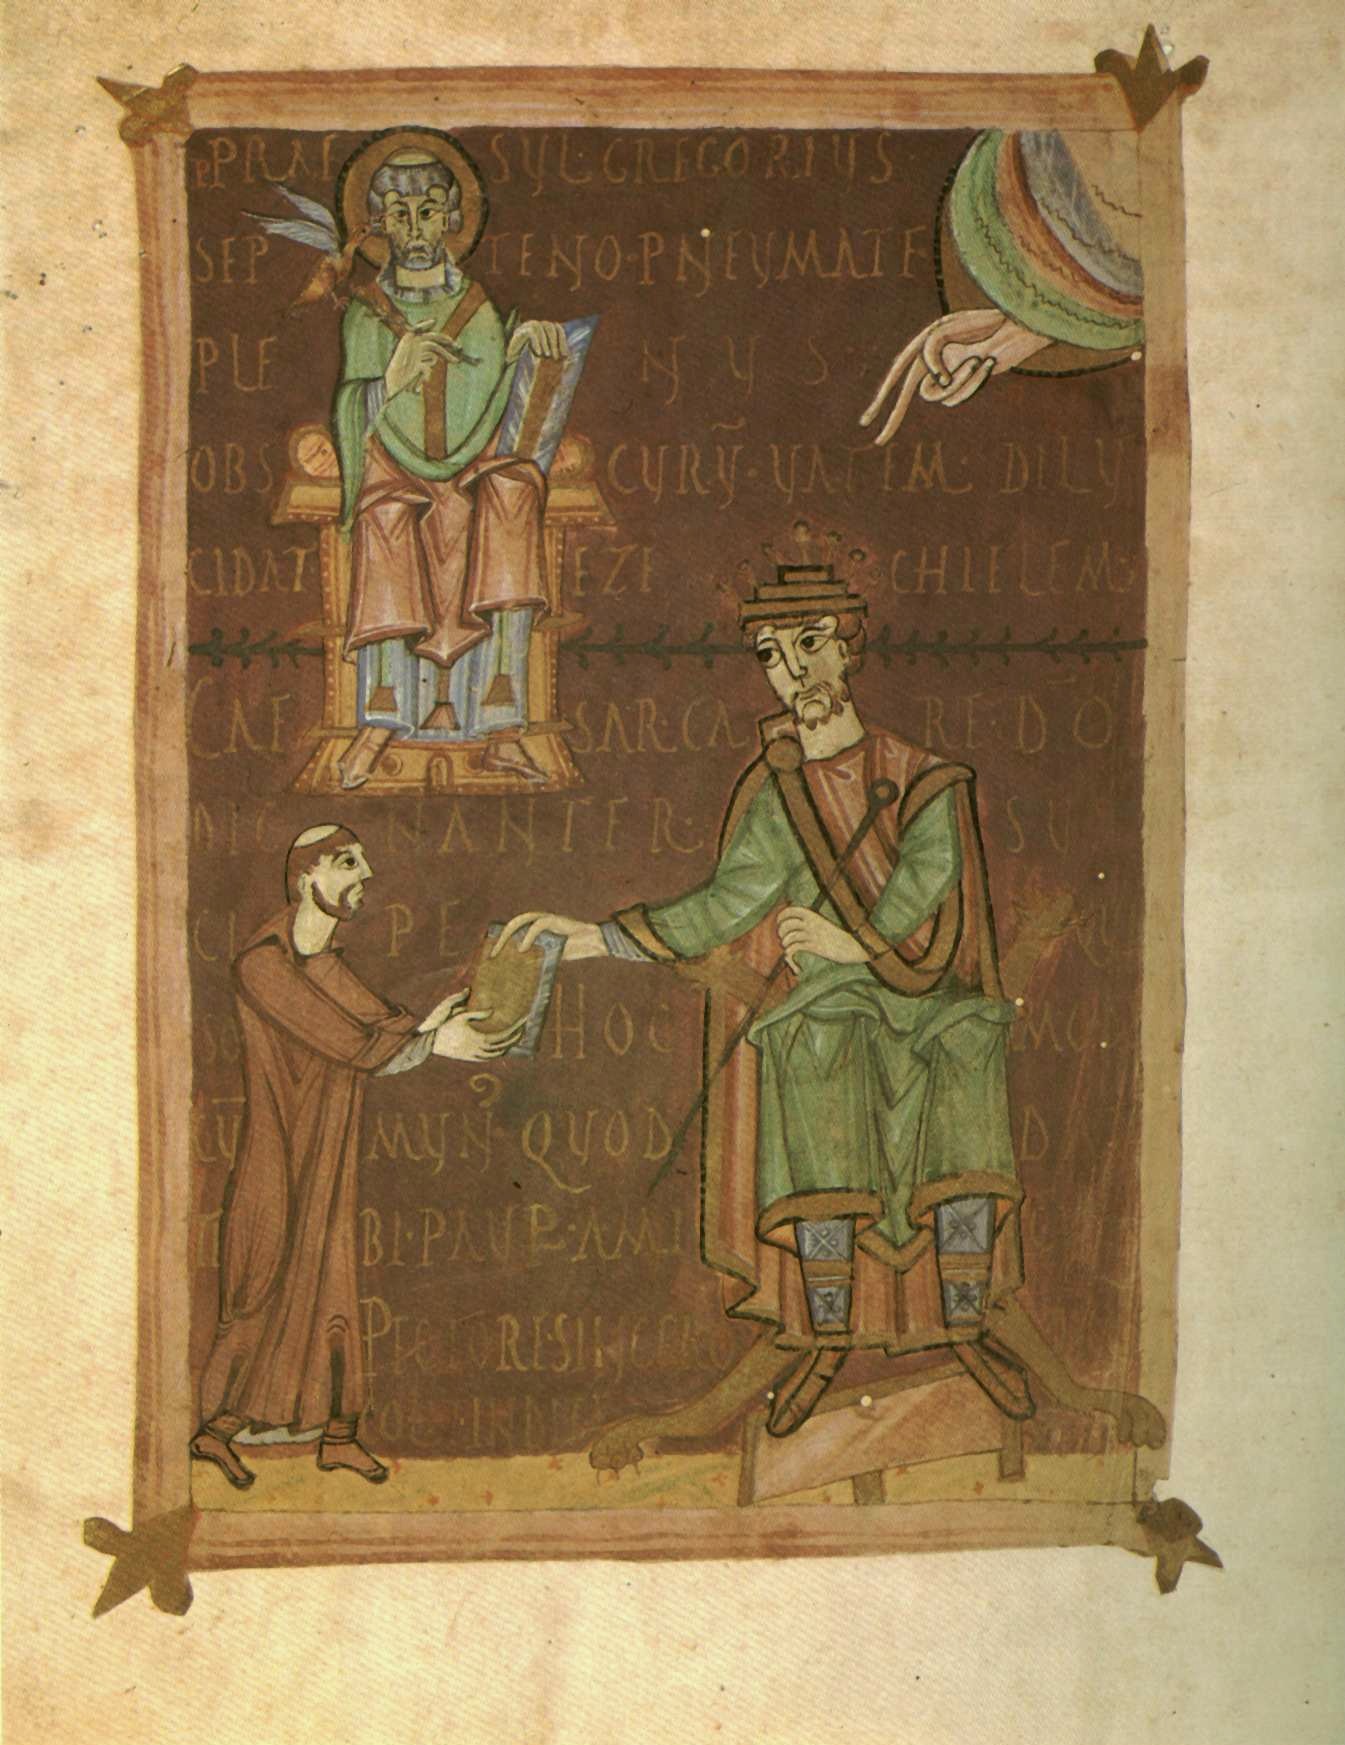 PRAE SYL·GREGORIYS·
SEP TENO·PNEYMATE
PLE NYS
OBS CYRỸ·YATEM·DILY
CIDAT EZE CHIELEM
CAE SAR·CA RE·DŌ
DIG NANTER· SU
CI PE
HOC MO
RỸ MYN̉·QYOD DA
T BI·PAUP·AMI
PECTORE·SINCERO